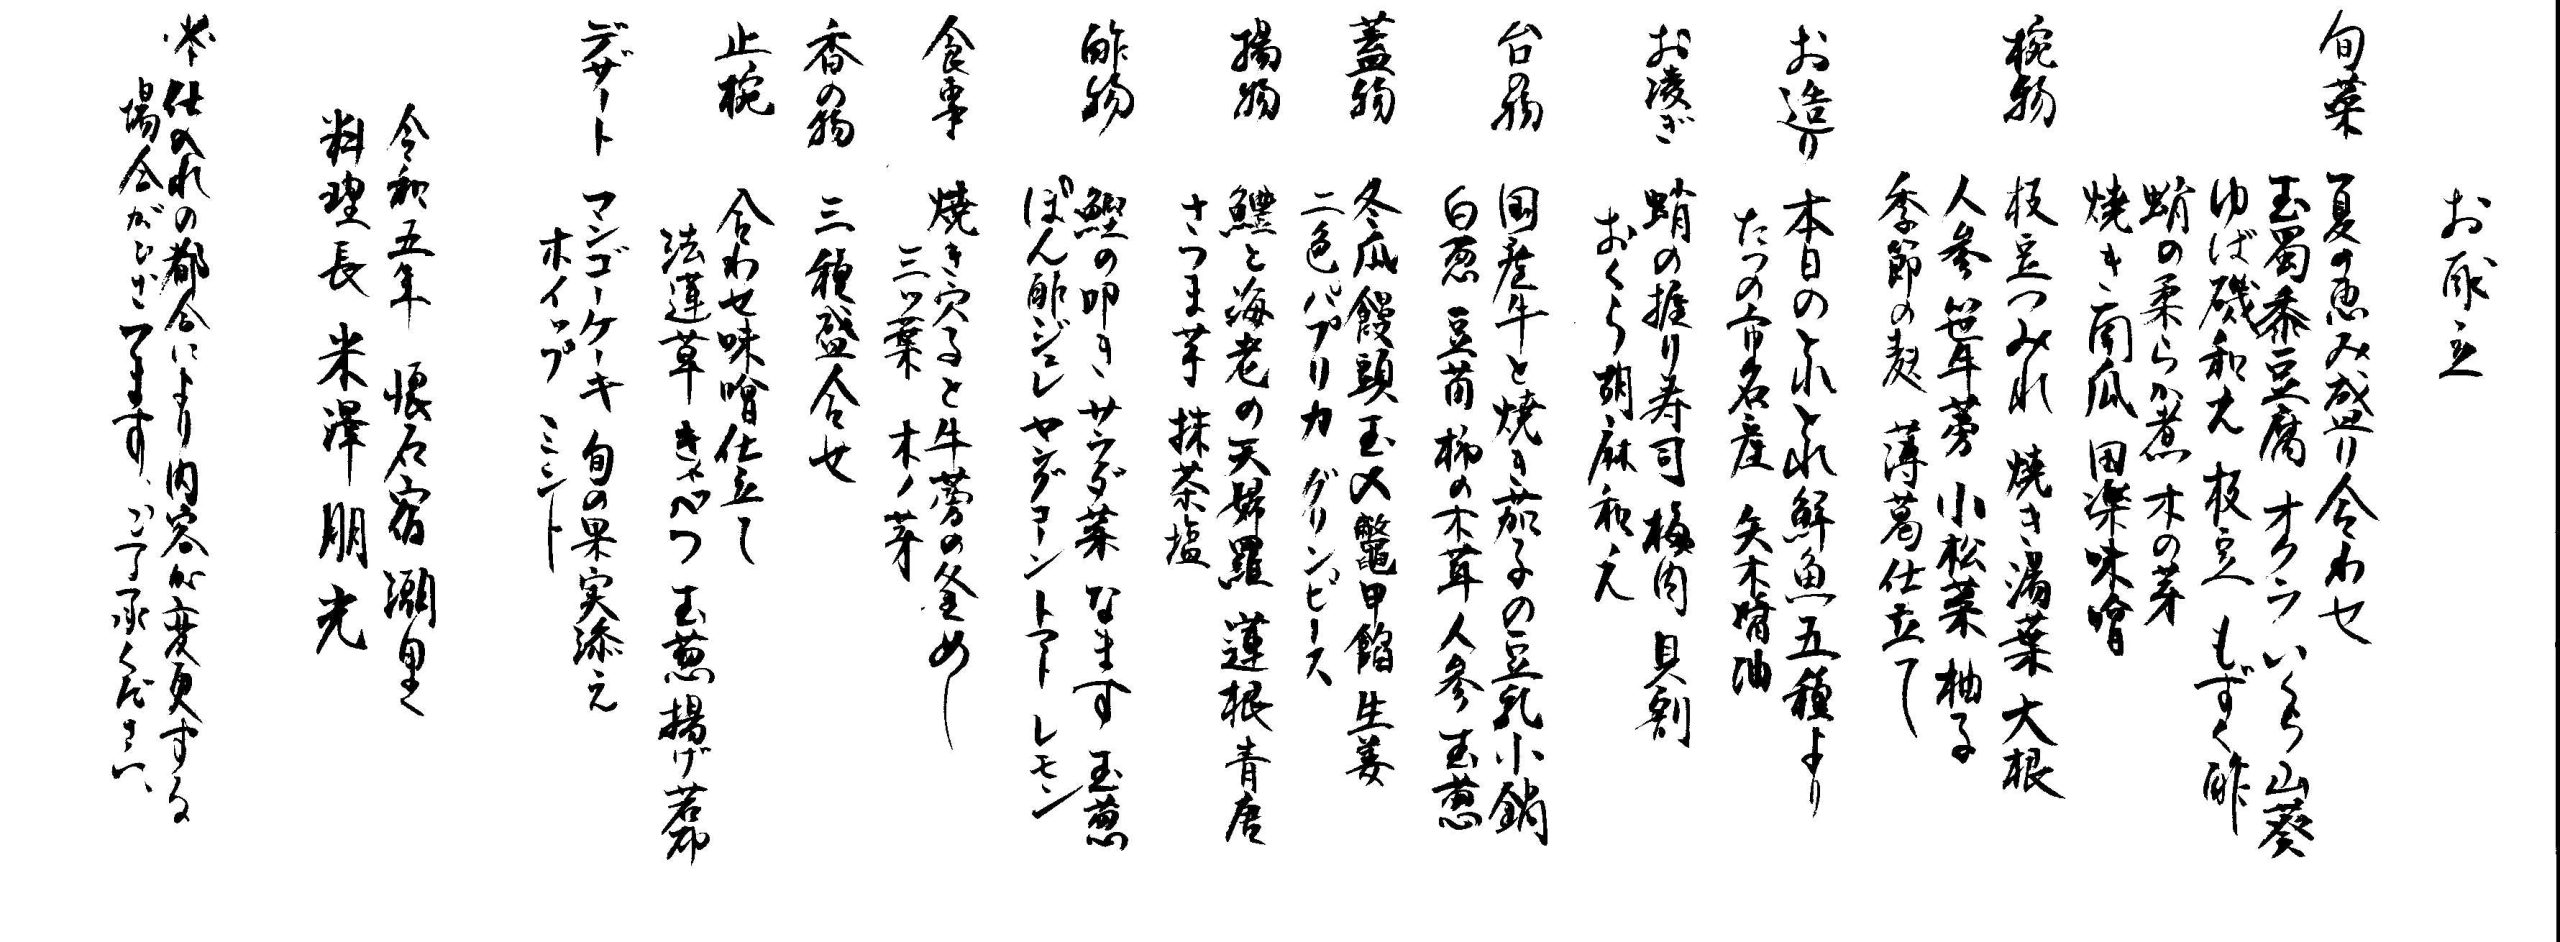 お献立
旬菜 夏の恵み盛り合わせ
玉蜀黍豆腐 オクラ いくら 山葵
ゆば磯和え 枝豆 もずく酢
蛸の柔らか煮 木の芽
焼き南瓜 田楽味噌
椀物 枝豆つみれ 焼き湯葉 大根
人参 笹牛蒡 小松菜 柚子
季節の麩 薄葛仕立て
お造り 本日のとれとれ鮮魚五種より
たつの市名産 矢木醤油
お凌ぎ 蛸の握り寿司 梅肉 貝割
おくら胡麻和え
台の物 国産牛と焼き茄子の豆乳小鍋
白葱 豆苗 柳の木茸 人参 玉葱
蓋物 冬瓜饅頭 玉〆鼈甲餡 生姜
二色パプリカ グリンピース
揚物 鱧と海老の天婦羅 蓮根 青唐
さつま芋 抹茶塩
酢物 鰹の叩き サラダ菜 なます 玉葱
ぽん酢ジュレ ヤングコーン トマト レモン
食事 焼き穴子と牛蒡の釜めし
三ッ葉 木ノ芽
香の物 三種盛合せ
止椀 合わせ味噌仕立て
法蓮草 きゃべつ 玉葱 揚げ 若布
デザート マンゴーケーキ 旬の果実添え
ホイップ ミント
令和五年 懐石宿 潮里
料理長 米澤朋光
※仕入れの都合により内容が変更する
場合がございます、ご了承ください、